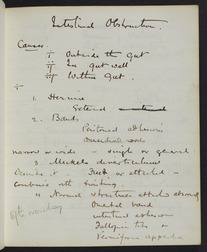 Intestinal Obstruction.
Causes
i) Outside the Gut
ii) In gut wall
iii) Within Gut.
i)
1. Hernia
External
2. Bands.
Peritoneal adhesions
Omental cords
narrow or wide - single or general
3 Meckel's diverticulum
Free or attached -
4 Normal structures attached abnormally
Omental band
intestinal adhesions
Fallopian tube or
Vermiform appendix